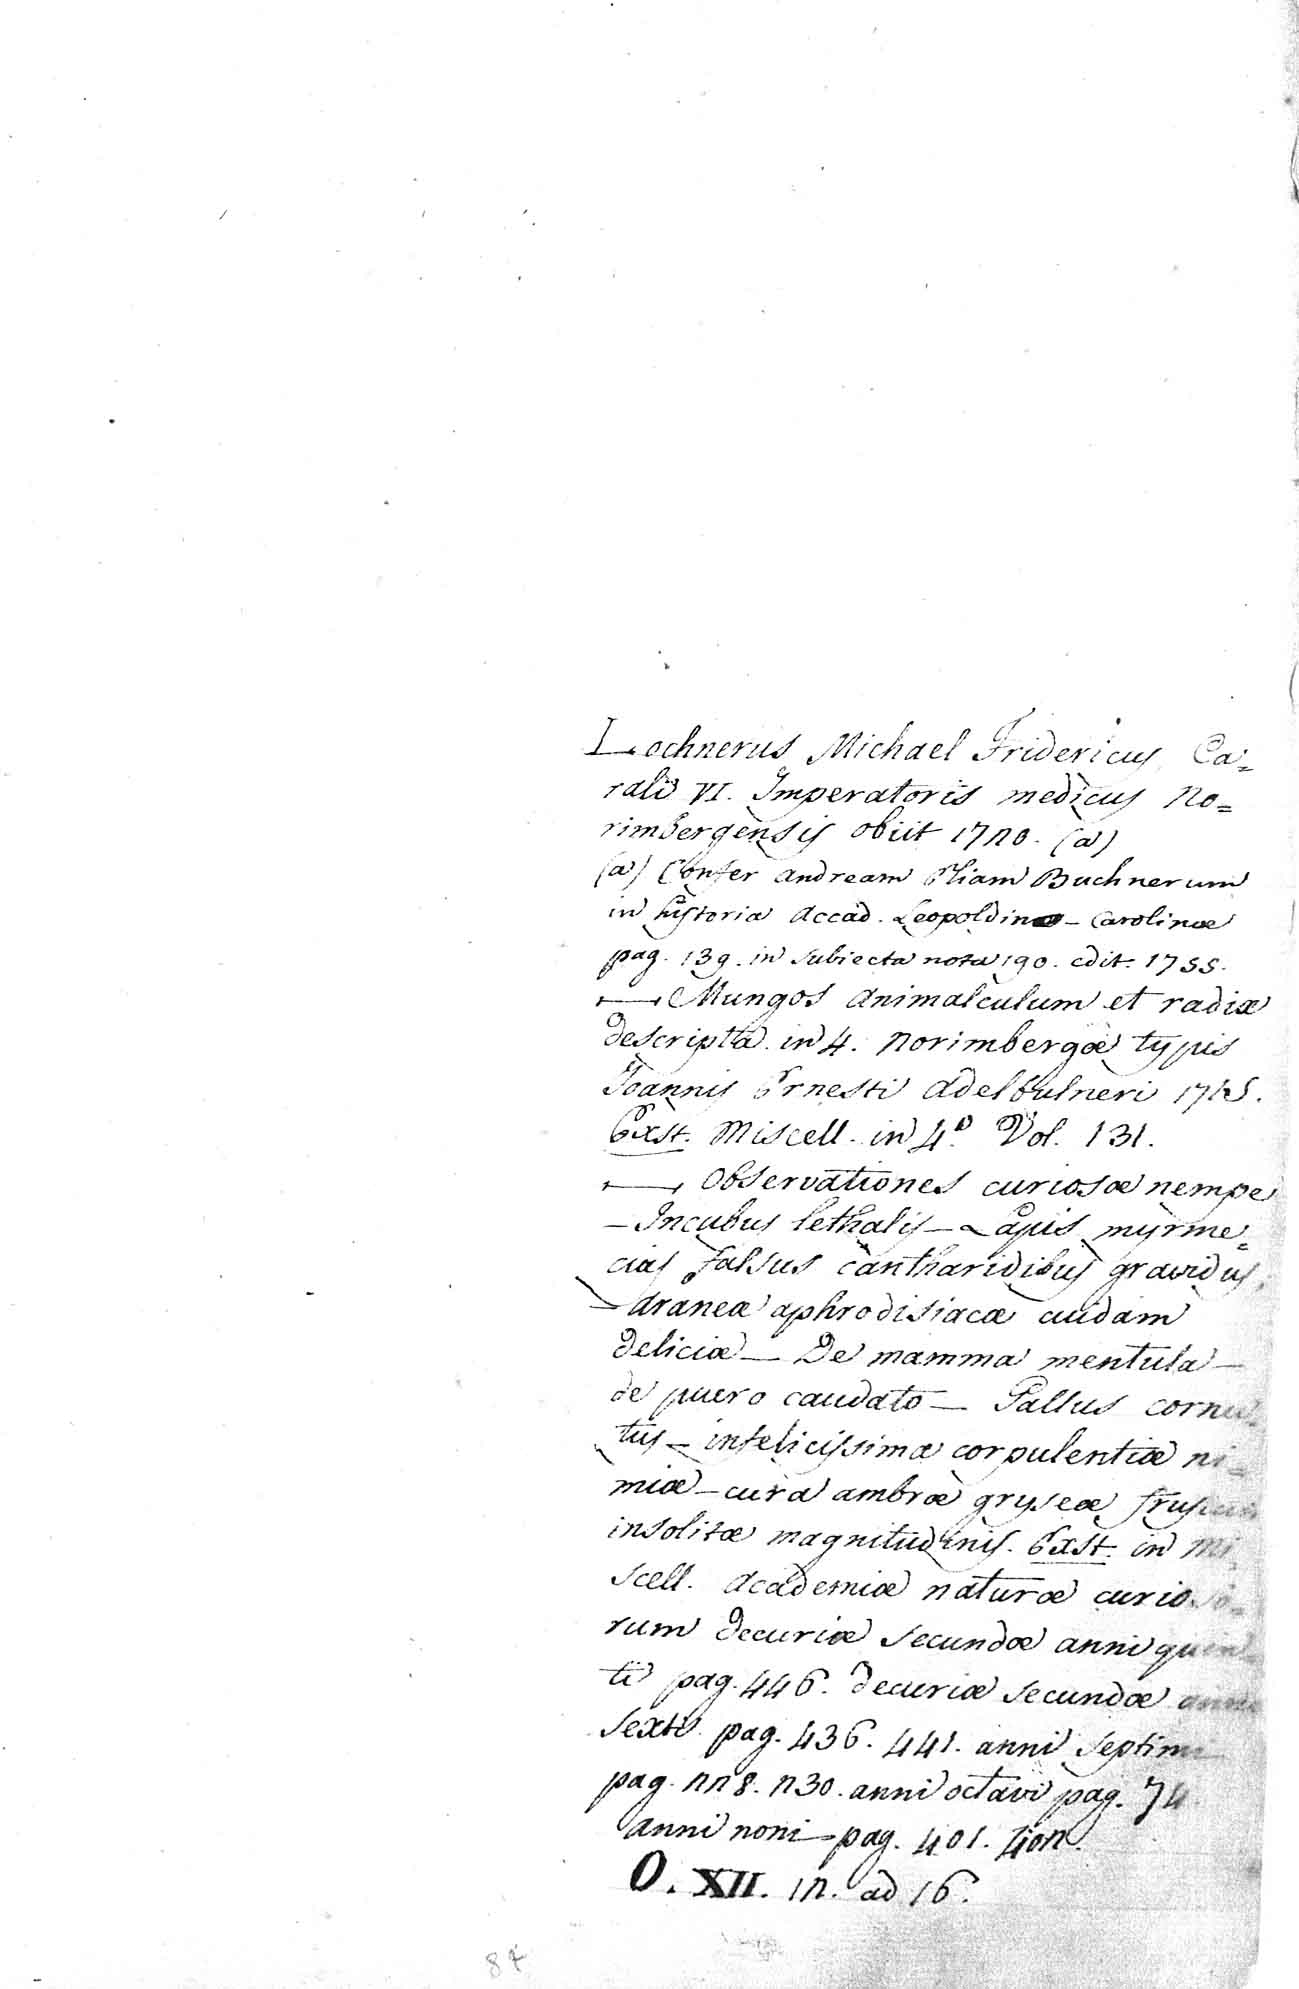 Lochnerus Michael Fridericus, Ca=
roli VI. Imperatoris medicus No=
rimbergensis obiit 1720. (a)
(a) Confer Andream Eliam Buchnerum
in historia Accad. Leopoldino - Carolinæ
pag. 139. in subiecta nota 190. edit. 1755.
— Mungos animalculum et radix
descripta. in 4. Norimbergæ typis
Joannis Ernesti Adelbulneri 1715.
Exst. Miscell. in 4.º Vol. 131.
— Observationes curiosæ nempe
— Incubus lethalis — Lapis myrme=
cias falsus cantharidibus gravidus,
— Araneæ aphrodisiacæ cuidam
deliciæ — De mamma mentula —
de puero caudato — Gallus cornu=
tus — infelicissima corpulentiæ ni=
miæ — cura ambræ gryseæ
insolitæ magnitudinis. Exst. in Mi=
scell. Academiæ naturæ curioso=
rum decuriæ secundæ anni quin=
ti pag. 446. decuriæ secundæ anni
sexti pag. 436. 441. anni septimi
pag. 228. 230. anni octavi pag. 74
anni noni — pag. 401. 402.
O. XII. 12. ad 16.
84